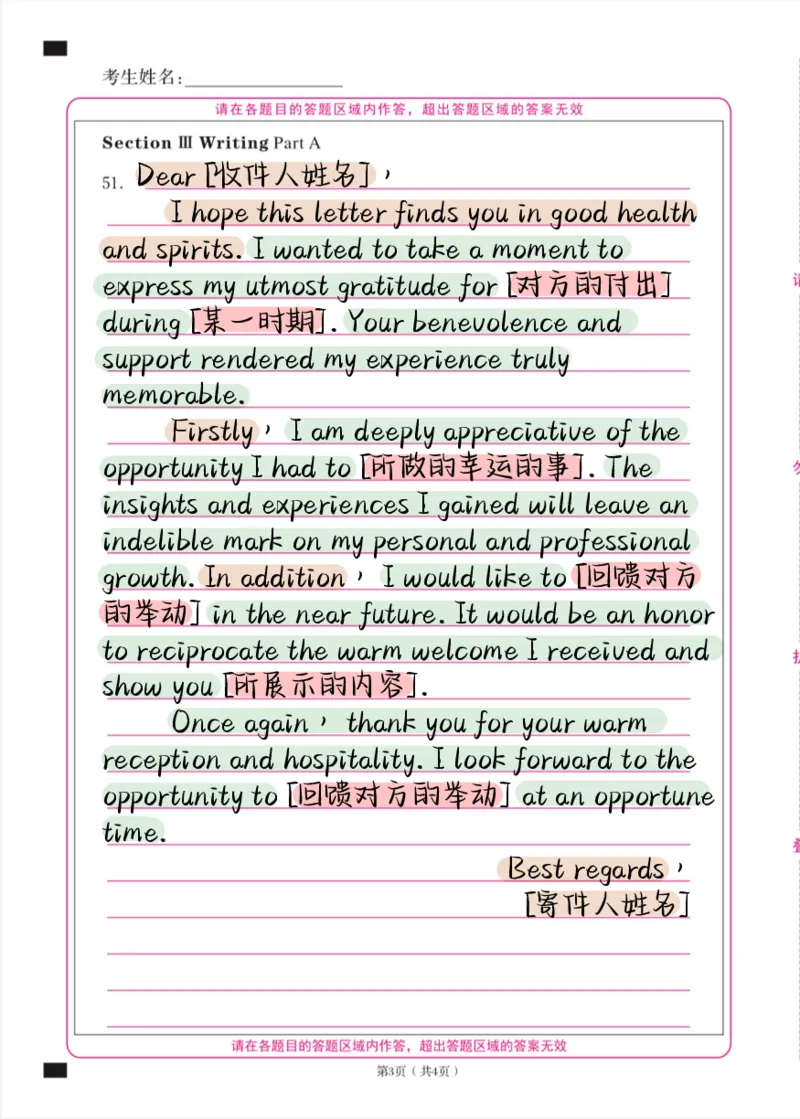 考生姓名：
请在各题目的答题区域内作答，超出答题区域的答案无效
Section Ⅲ Writing Part A
51. Dear [收件人姓名]，
I hope this letter finds you in good health
and spirits. I wanted to take a moment to
express my utmost gratitude for [对方的付出]
during [某一时期]. Your benevolence and
support rendered my experience truly
memorable.
Firstly， I am deeply appreciative of the
opportunity I had to [所做的幸运的事]. The
insights and experiences I gained will leave an
indelible mark on my personal and professional
growth. In addition， I would like to [回馈对方
的举动] in the near future. It would be an honor
to reciprocate the warm welcome I received and
show you [所展示的内容].
Once again， thank you for your warm
reception and hospitality. I look forward to the
opportunity to [回馈对方的举动] at an opportune
time.
Best regards，
[寄件人姓名]
请在各题目的答题区域内作答，超出答题区域的答案无效
第3页（共4页）